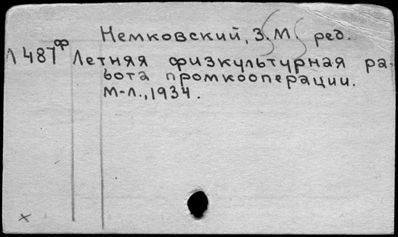 Немковский, З.М. ред.
Л 487ф Летняя физкультурная ра-
бота промкооперации.
М-Л., 1934.